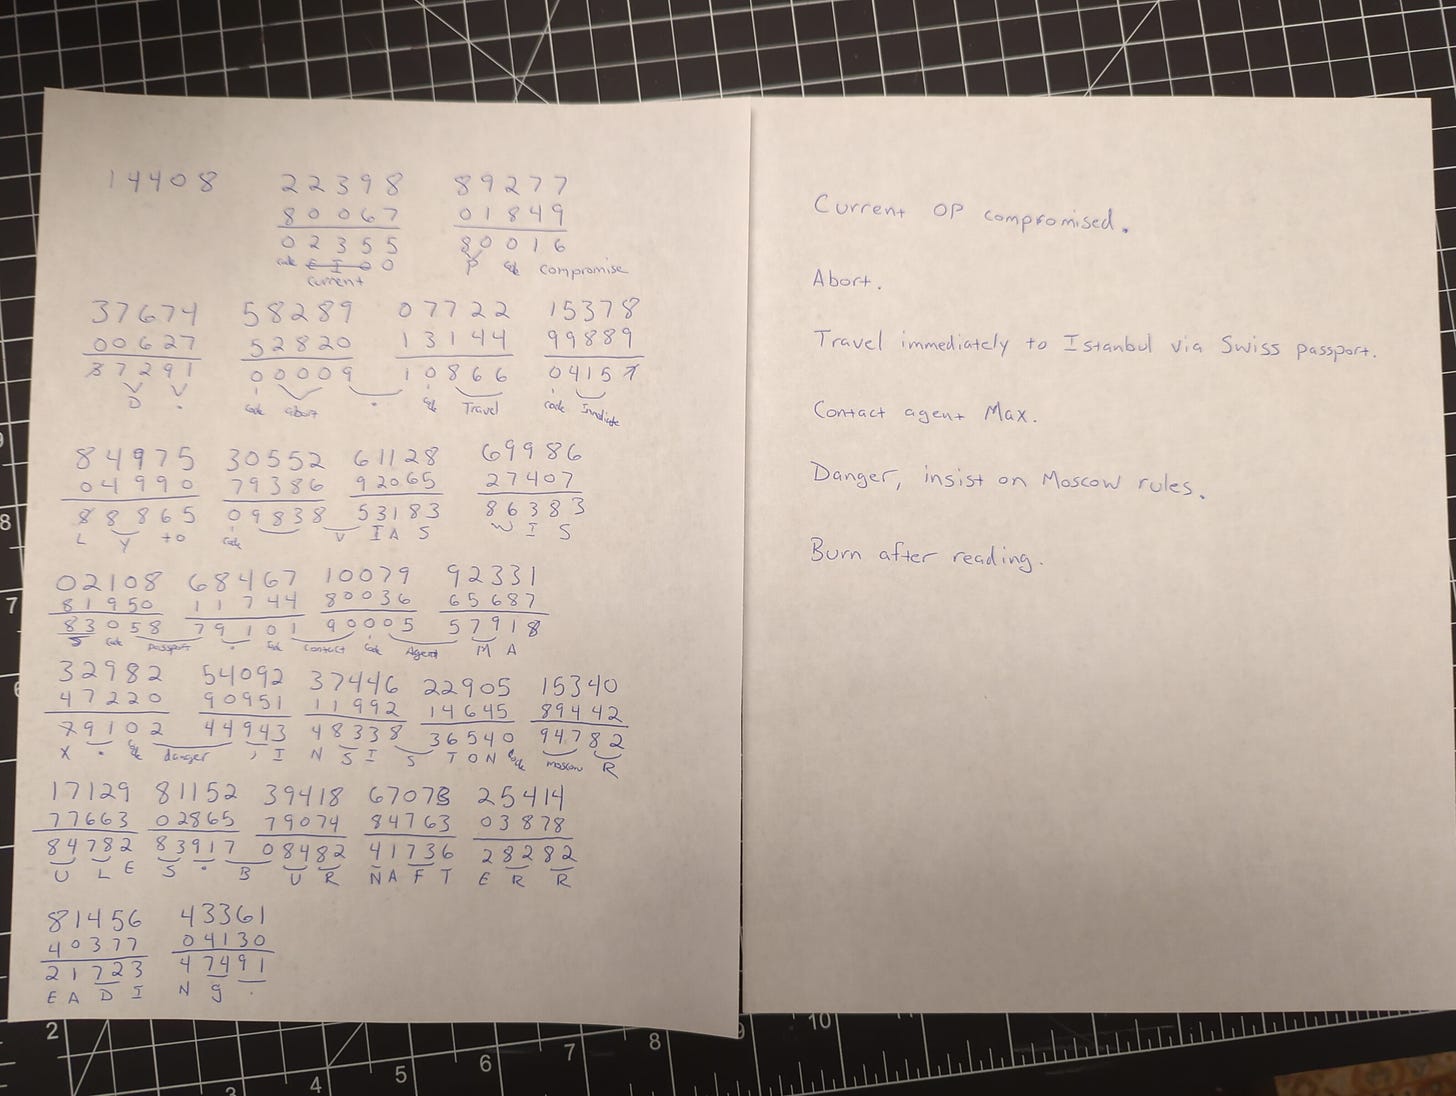 14408 22398 89277
80067 01849
02355 80016
code E I O O P code compromise
current
37674 58289 07722 15378
00627 52820 13144 99889
37291 00009 10866 04157
D . code abort . code Travel code
84975 30552 61128 69986
04990 79386 92065 27407
88865 09838 53183 86383
L Y to code V I A S W I S
02108 68467 10079 92331
81950 11744 80036 65687
83058 79101 90005 57918
S code passport . code contact code Agent M A
32982 54092 37446 22905 15340
47220 90951 11992 14645 89442
79102 44943 48338 36540 94782
X . code danger , I N S I S T O N code moscow R
17129 81152 39418 67073 25414
77663 02865 79074 84763 03878
84782 83917 08482 41736 28282
U L E S . B U R N A F T E R R
81456 43361
40377 04130
21723 47491
E A D I N g .
Current OP compromised.
Abort.
Travel immediately to Istanbul via Swiss passport.
Contact agent Max.
Danger, insist on Moscow rules.
Burn after reading.
2 3 4 5 6 7 8 9 10
6 7 8 9